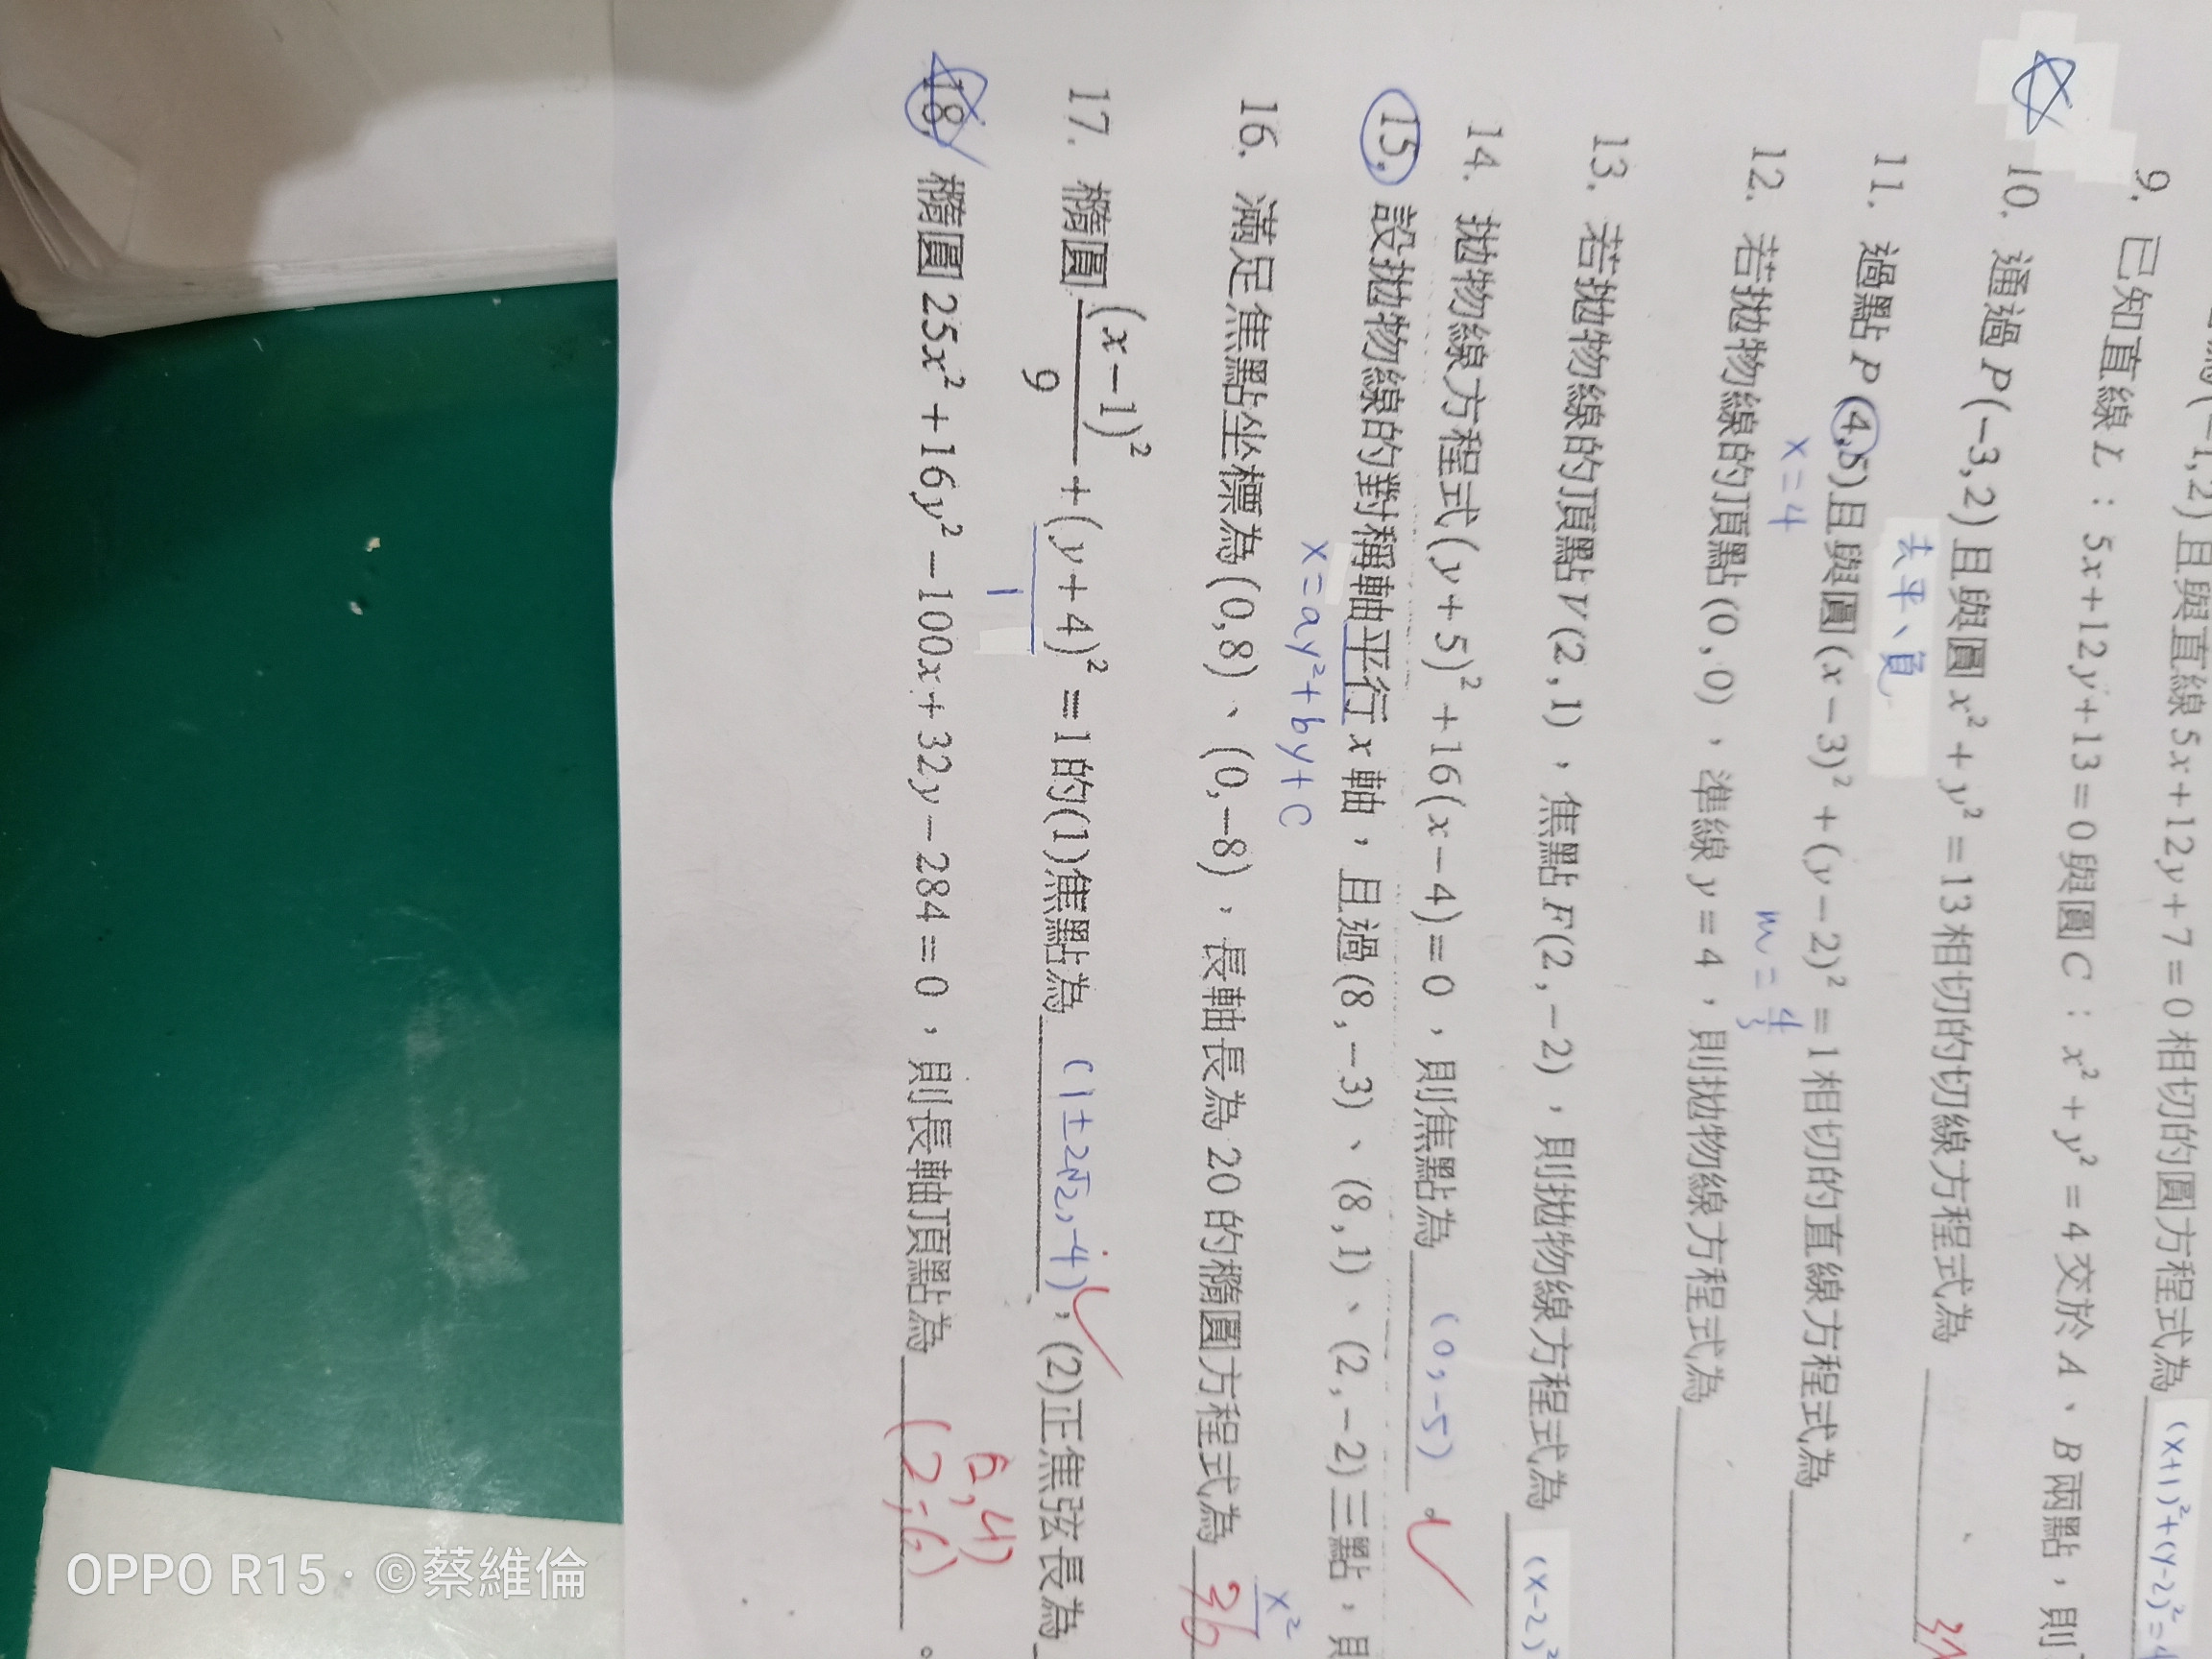 (-1,2)且與直線5x+12y+7=0相切的圓方程式為 (x+1)²+(y-2)²=4
9. 已知直線L：5x+12y+13=0與圓C：x²+y²=4交於A、B兩點，則
10. 通過P(-3,2)且與圓x²+y²=13相切的切線方程式為
去平、負
11. 過點P(4,5)且與圓(x-3)²+(y-2)²=1相切的直線方程式為
x=4 m=4/3
12. 若拋物線的頂點(0,0)，準線y=4，則拋物線方程式為
13. 若拋物線的頂點V(2,1)，焦點F(2,-2)，則拋物線方程式為 (x-2)²
14. 拋物線方程式(y+5)²+16(x-4)=0，則焦點為 (0,-5)
15. 設拋物線的對稱軸平行x軸，且過(8,-3)、(8,1)、(2,-2)三點，則
x=ay²+by+c
16. 滿足焦點坐標為(0,8)、(0,-8)，長軸長為20的橢圓方程式為 x²/36
17. 橢圓(x-1)²/9+(y+4)²/1=1的(1)焦點為 (1±2√2,-4)，(2)正焦弦長為
18. 橢圓25x²+16y²-100x+32y-284=0，則長軸頂點為 (2,-6) 。
OPPO R15 · ©蔡維倫